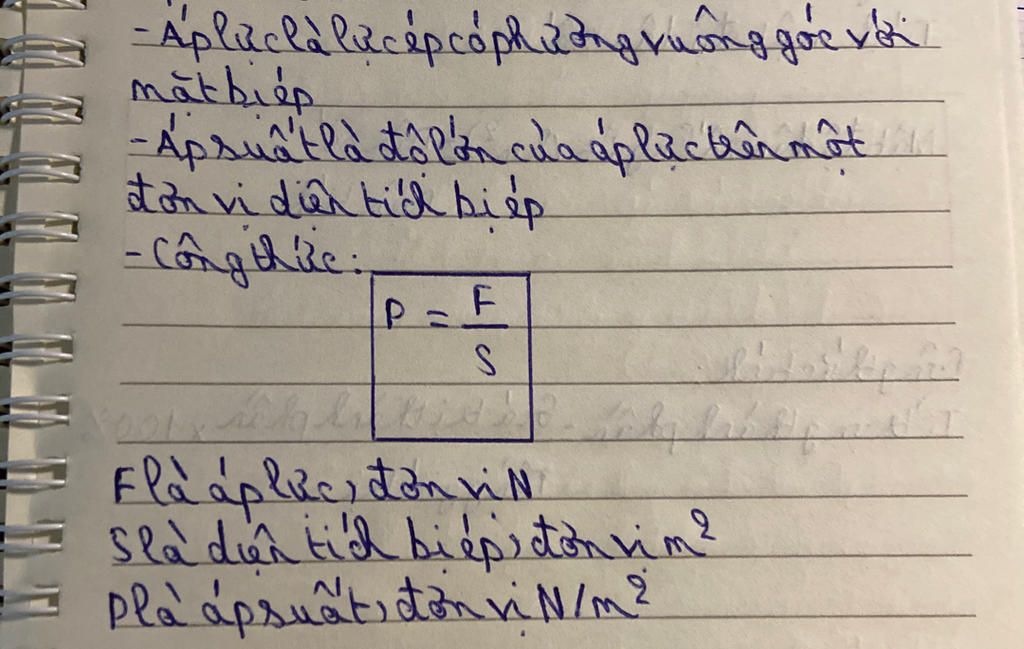 - Áp lực là lực ép có phương vuông góc với
mặt bị ép
- Áp suất là độ lớn của áp lực trên một
đơn vị diện tích bị ép
- Công thức:
P = F / S
F là áp lực, đơn vị N
S là diện tích bị ép, đơn vị m²
P là áp suất, đơn vị N/m²